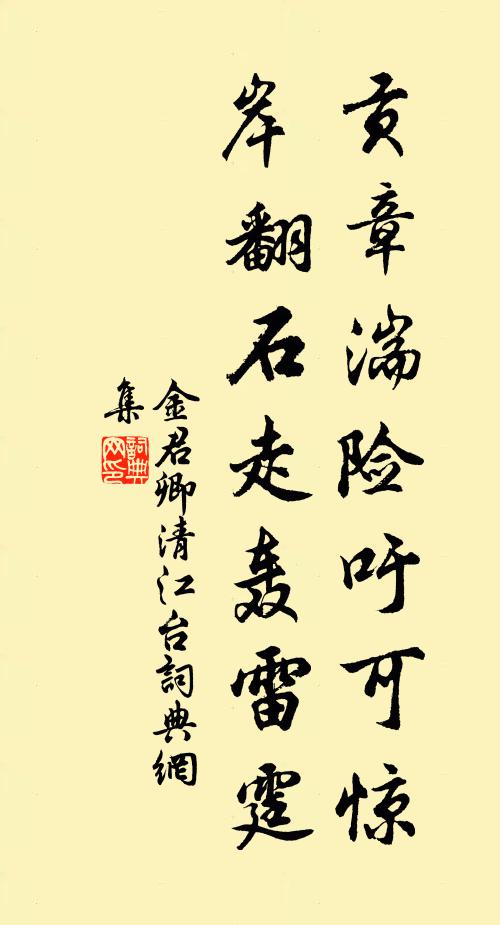 贡章湍险吁可惊
岸翻石走轰雷霆
金君卿清江台詞典網
集
詞典
网印